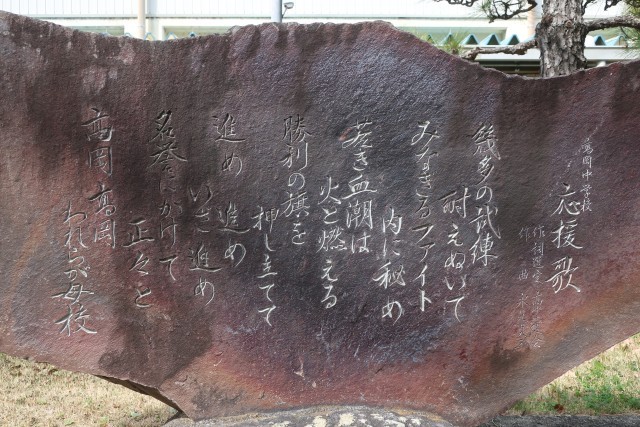 高岡中学校
応援歌
作詞
作曲
幾多の試練
耐えぬいて
みなぎるファイト
内に秘め
若き血潮は
火と燃える
勝利の旗を
押し立てて
進め 進め
いざ進め
名誉にかけて
正々と
高岡 高岡
われらが母校